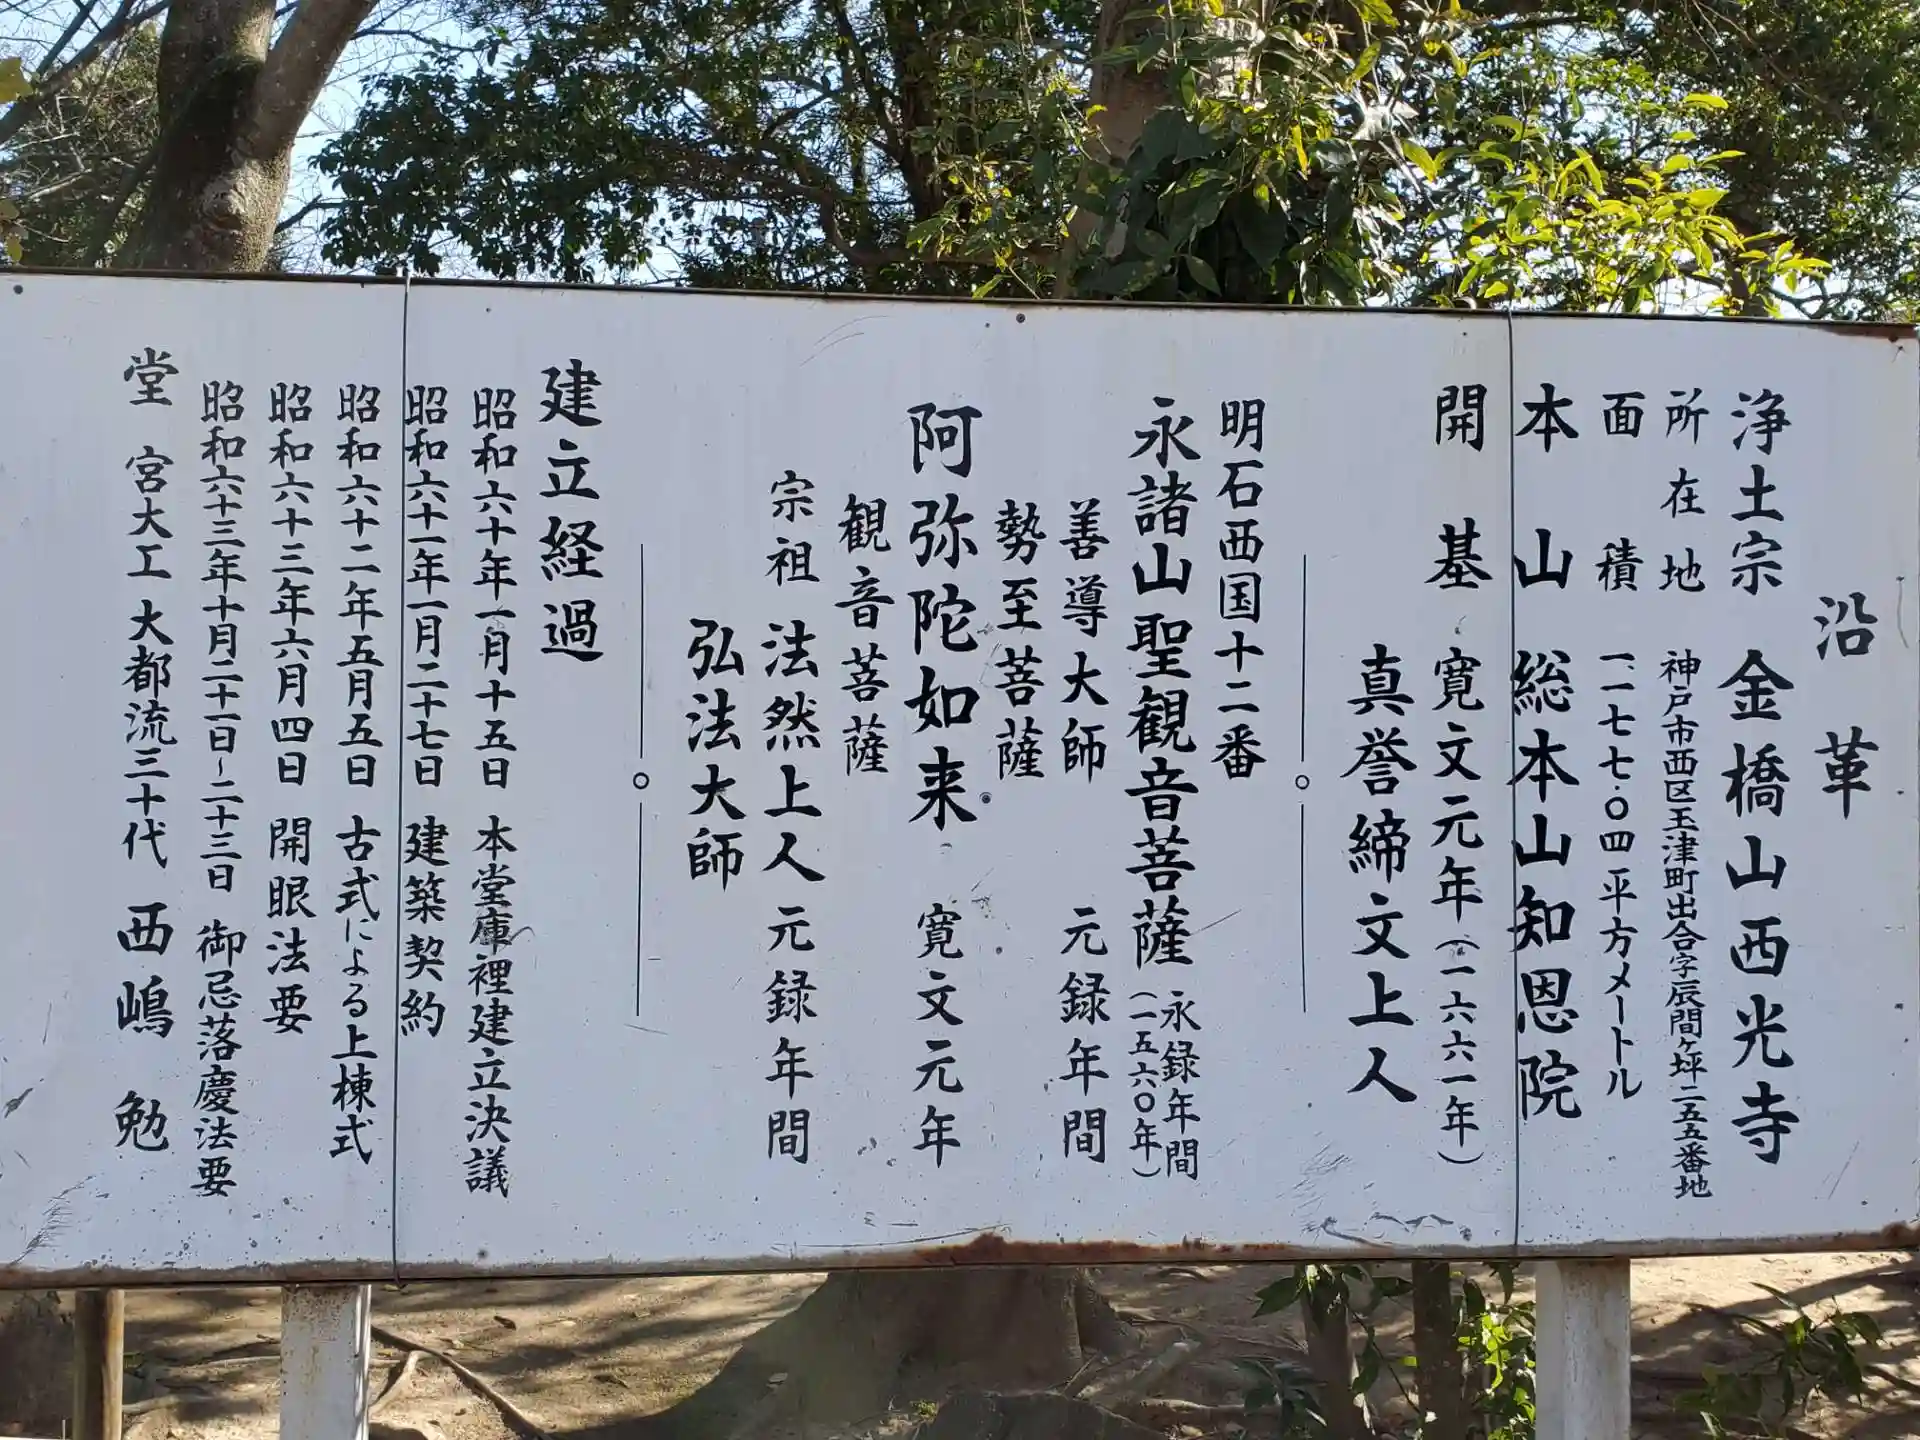 沿革
浄土宗 金橋山西光寺
所在地 神戸市西区玉津町出合字辰間ヶ坪二五五番地
面積 一一七七・〇四平方メートル
本山 総本山知恩院
開基 寛文元年(一六六一年)
真誉締文上人
明石西国十二番
永諸山聖観音菩薩 永録年間
(一五六〇年)
善導大師 元録年間
勢至菩薩
阿弥陀如来 寛文元年
観音菩薩
宗祖 法然上人 元録年間
弘法大師
建立経過
昭和六十年一月十五日 本堂庫裡建立決議
昭和六十一年一月二十七日 建築契約
昭和六十二年五月五日 古式による上棟式
昭和六十三年六月四日 開眼法要
昭和六十三年十月二十一日~二十三日 御忌落慶法要
堂宮大工 大都流三十代 西嶋勉